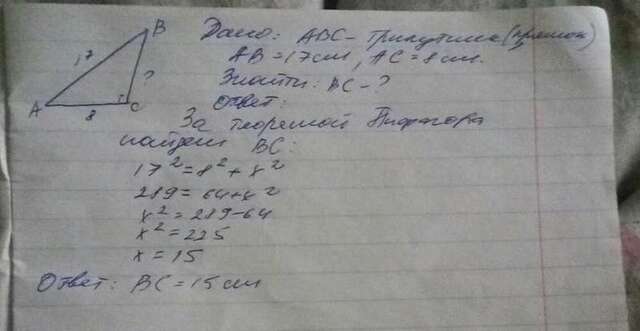 Дано: ABC - Трикутник (прямок)
AB = 17 см, AC = 8 см.
Знайти: BC - ?
Ответ:
За теоремой Пифагора
найдем BC:
17² = 8² + x²
289 = 64 + x²
x² = 289 - 64
x² = 225
x = 15
Ответ: BC = 15 см
B
17
?
A
8
C